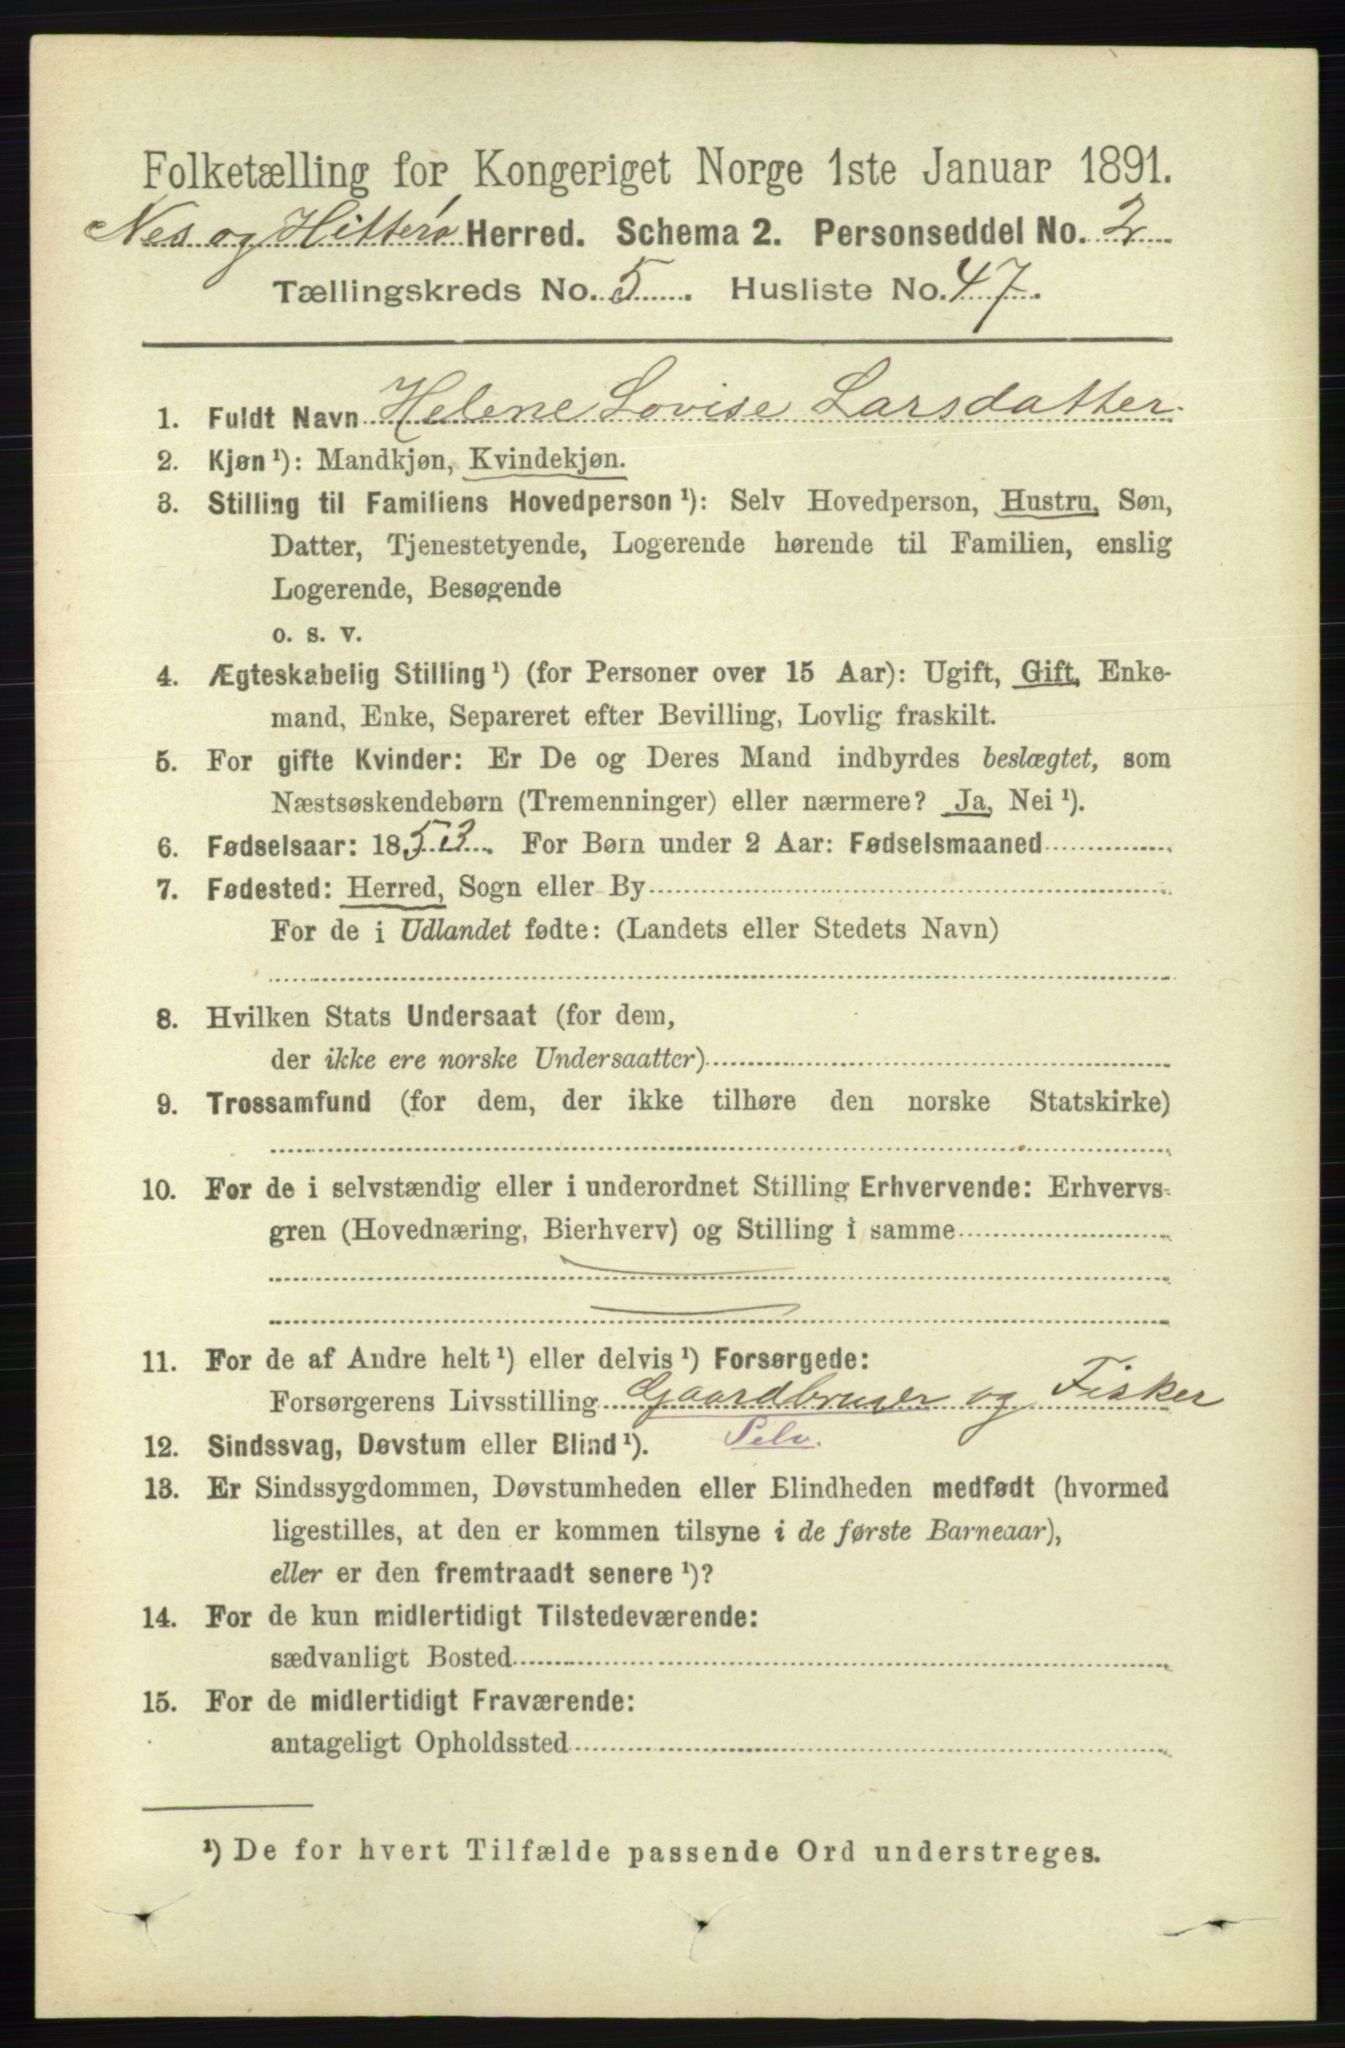 Folketælling for Kongeriget Norge 1ste Januar 1891.
Nes og Hitterø Herred. Schema 2. Personseddel No. 2
Tællingskreds No. 5. Husliste No. 47.
1. Fuldt Navn Helene Lovise Larsdatter.
2. Kjøn ¹): Mandkjøn, Kvindekjøn.
3. Stilling til Familiens Hovedperson ¹): Selv Hovedperson, Hustru, Søn,
Datter, Tjenestetyende, Logerende hørende til Familien, enslig
Logerende, Besøgende
o. s. v.
4. Ægteskabelig Stilling ¹) (for Personer over 15 Aar): Ugift, Gift, Enke-
mand, Enke, Separeret efter Bevilling, Lovlig fraskilt.
5. For gifte Kvinder: Er De og Deres Mand indbyrdes beslægtet, som
Næstsøskendebørn (Tremenninger) eller nærmere? Ja, Nei ¹).
6. Fødselsaar: 1853. For Børn under 2 Aar: Fødselsmaaned
7. Fødested: Herred, Sogn eller By
For de i Udlandet fødte: (Landets eller Stedets Navn)
8. Hvilken Stats Undersaat (for dem,
der ikke ere norske Undersaatter)
9. Trossamfund (for dem, der ikke tilhøre den norske Statskirke)
10. For de i selvstændig eller i underordnet Stilling Erhvervende: Erhvervs-
gren (Hovednæring, Bierhverv) og Stilling i samme
11. For de af Andre helt ¹) eller delvis ¹) Forsørgede:
Forsørgerens Livsstilling Gaardbruger og Fisker
Selv.
12. Sindssvag, Døvstum eller Blind ¹).
13. Er Sindssygdommen, Døvstumheden eller Blindheden medfødt (hvormed
ligestilles, at den er kommen tilsyne i de første Barneaar),
eller er den fremtraadt senere ¹)?
14. For de kun midlertidigt Tilstedeværende:
sædvanligt Bosted
15. For de midlertidigt Fraværende:
antageligt Opholdssted
¹) De for hvert Tilfælde passende Ord understreges.